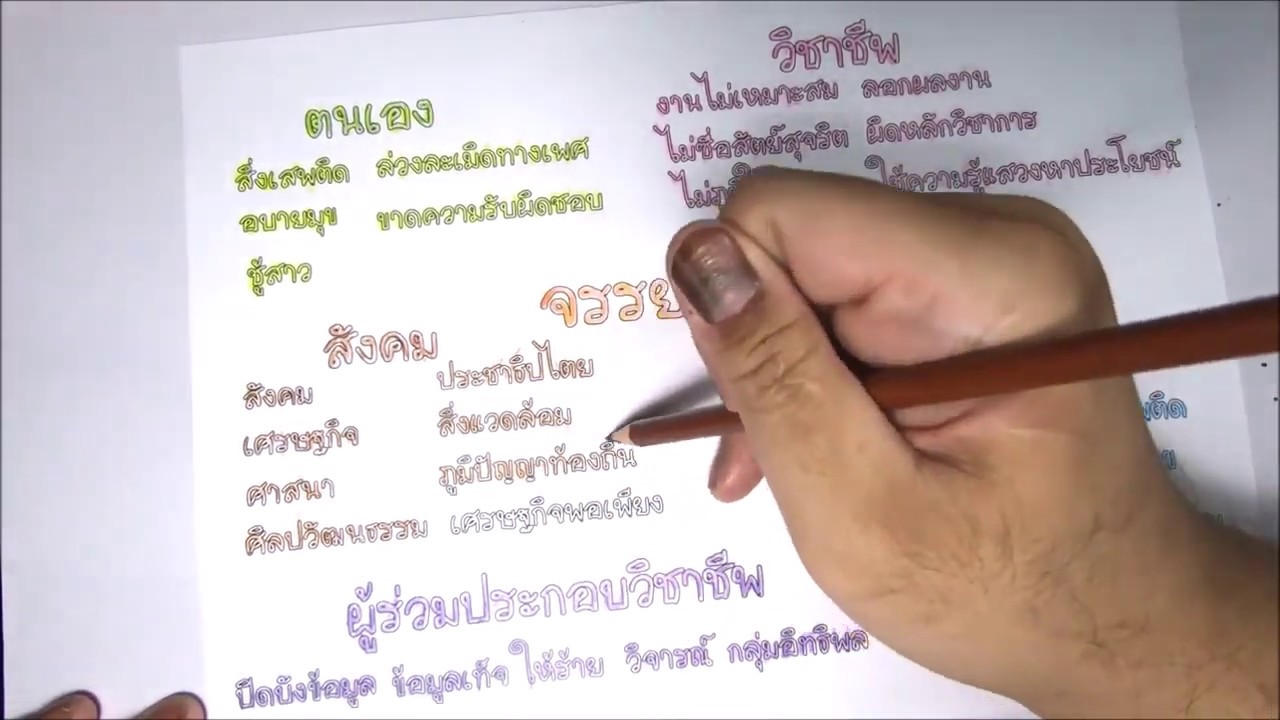 วิชาชีพ
งานไม่เหมาะสม ลอกผลงาน
ไม่ซื่อสัตย์สุจริต ผิดหลักวิชาการ
ใช้ความรู้แสวงหาประโยชน์
ตนเอง
สิ่งเสพติด ล่วงละเมิดทางเพศ
อบายมุข ขาดความรับผิดชอบ
ชู้สาว
สังคม
สังคม ประชาธิปไตย
เศรษฐกิจ สิ่งแวดล้อม
ศาสนา ภูมิปัญญาท้องถิ่น
ศิลปวัฒนธรรม เศรษฐกิจพอเพียง
ผู้ร่วมประกอบวิชาชีพ
ปิดบังข้อมูล ข้อมูลเท็จ ให้ร้าย วิจารณ์ กลุ่มอิทธิพล